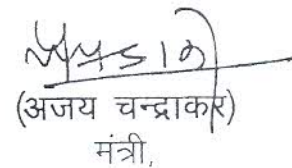 (अजय चन्द्राकर)
मंत्री,